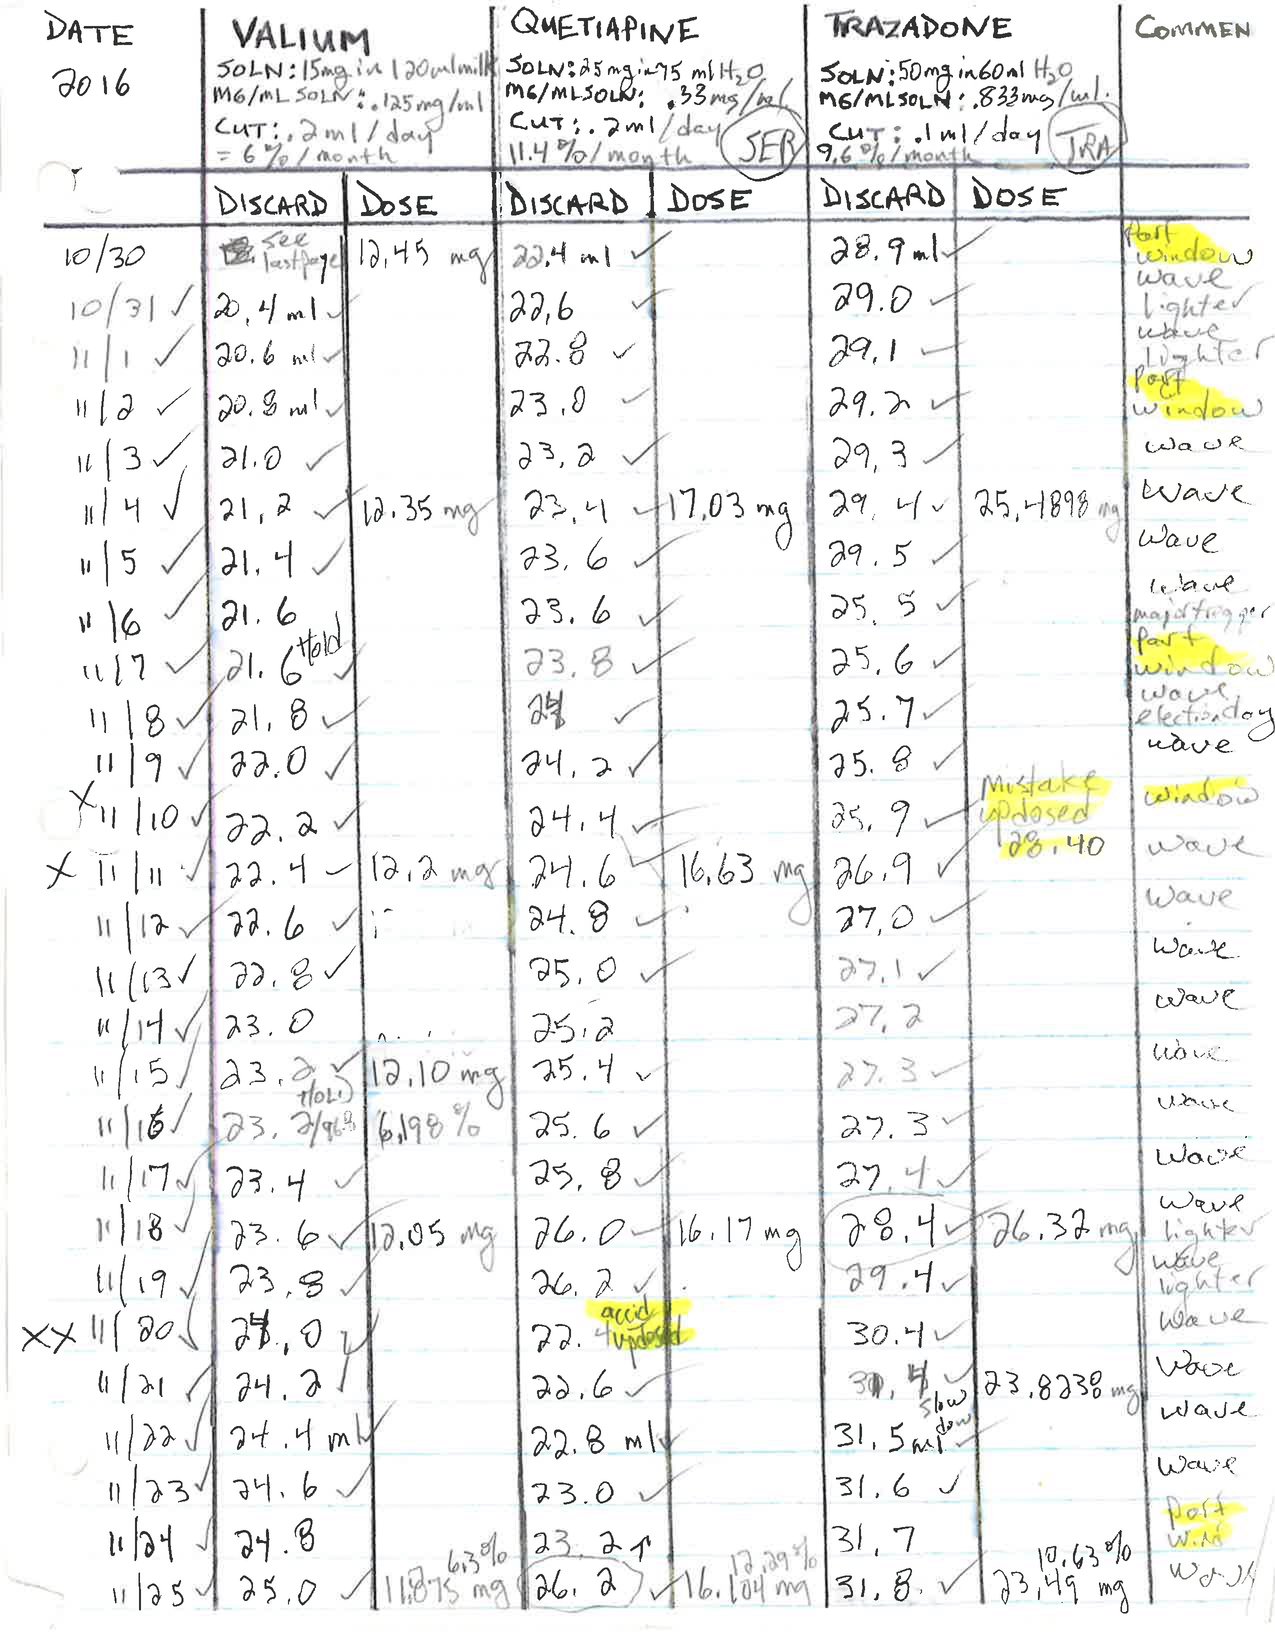 DATE VALIUM QUETIAPINE TRAZADONE COMMEN
2016 SOLN: 15mg in 120ml milk SOLN: 25mg in 75 ml H2O SOLN: 50mg in 60ml H2O
MG/ML SOLN: .125mg/ml MG/ML SOLN: .33mg/ml. MG/ML SOLN: .833mg/ml.
CUT: .2ml/day CUT: .2ml/day SER CUT: .1ml/day TRA
= 6%/month 11.4%/month 9.6%/month
DISCARD DOSE DISCARD DOSE DISCARD DOSE
10/30 see last page 12.45 mg 22.4 ml ✓ 28.9 ml ✓ Part window
10/31 ✓ 20.4 ml ✓ 22.6 ✓ 29.0 ✓ wave lighter
11/1 ✓ 20.6 ml ✓ 22.8 ✓ 29.1 ✓ wave lighter
11/2 ✓ 20.8 ml ✓ 23.0 ✓ 29.2 ✓ Part window
11/3 ✓ 21.0 ✓ 23.2 ✓ 29.3 ✓ wave
11/4 ✓ 21.2 ✓ 12.35 mg 23.4 ✓ 17.03 mg 29.4 ✓ 25.4898 mg wave
11/5 ✓ 21.4 ✓ 23.6 ✓ 29.5 ✓ wave
11/6 ✓ 21.6 ✓ 23.6 ✓ 25.5 ✓ wave major trigger
11/7 ✓ 21.6 Hold ✓ 23.8 ✓ 25.6 ✓ Part window
11/8 ✓ 21.8 ✓ 24 ✓ 25.7 ✓ wave election day
11/9 ✓ 22.0 ✓ 24.2 ✓ 25.8 ✓ wave
X 11/10 ✓ 22.2 ✓ 24.4 ✓ 25.9 ✓ Mistake updosed 28.40 window
X 11/11 ✓ 22.4 ✓ 12.2 mg 24.6 ✓ 16.63 mg 26.9 ✓ wave
11/12 ✓ 22.6 ✓ 24.8 ✓ 27.0 ✓ wave
11/13 ✓ 22.8 ✓ 25.0 ✓ 27.1 ✓ wave
11/14 ✓ 23.0 25.2 27.2 wave
11/15 ✓ 23.2 ✓ 12.10 mg 25.4 ✓ 27.3 ✓ wave
11/16 ✓ 23.2 HOLD 6.198% 25.6 ✓ 27.3 ✓ wave
11/17 ✓ 23.4 ✓ 25.8 ✓ 27.4 ✓ wave
11/18 ✓ 23.6 ✓ 12.05 mg 26.0 ✓ 16.17 mg 28.4 ✓ 26.32 mg wave lighter
11/19 ✓ 23.8 ✓ 26.2 ✓ 29.4 ✓ wave lighter
XX 11/20 ✓ 24.0 ✓ 22.4 accid updosed 30.4 ✓ wave
11/21 ✓ 24.2 ✓ 22.6 ✓ ✓ 23.8238 mg wave
11/22 ✓ 24.4 ml ✓ 22.8 ml ✓ 31.5 ml ✓ slow down wave
11/23 ✓ 24.6 ✓ 23.0 ✓ 31.6 ✓ wave
11/24 ✓ 24.8 23.2 31.7 Part wind
11/25 ✓ 25.0 ✓ 11.875 mg 6.3% 26.2 ✓ 16.104 mg 12.29% 31.8 ✓ 23.49 mg 10.63% wave